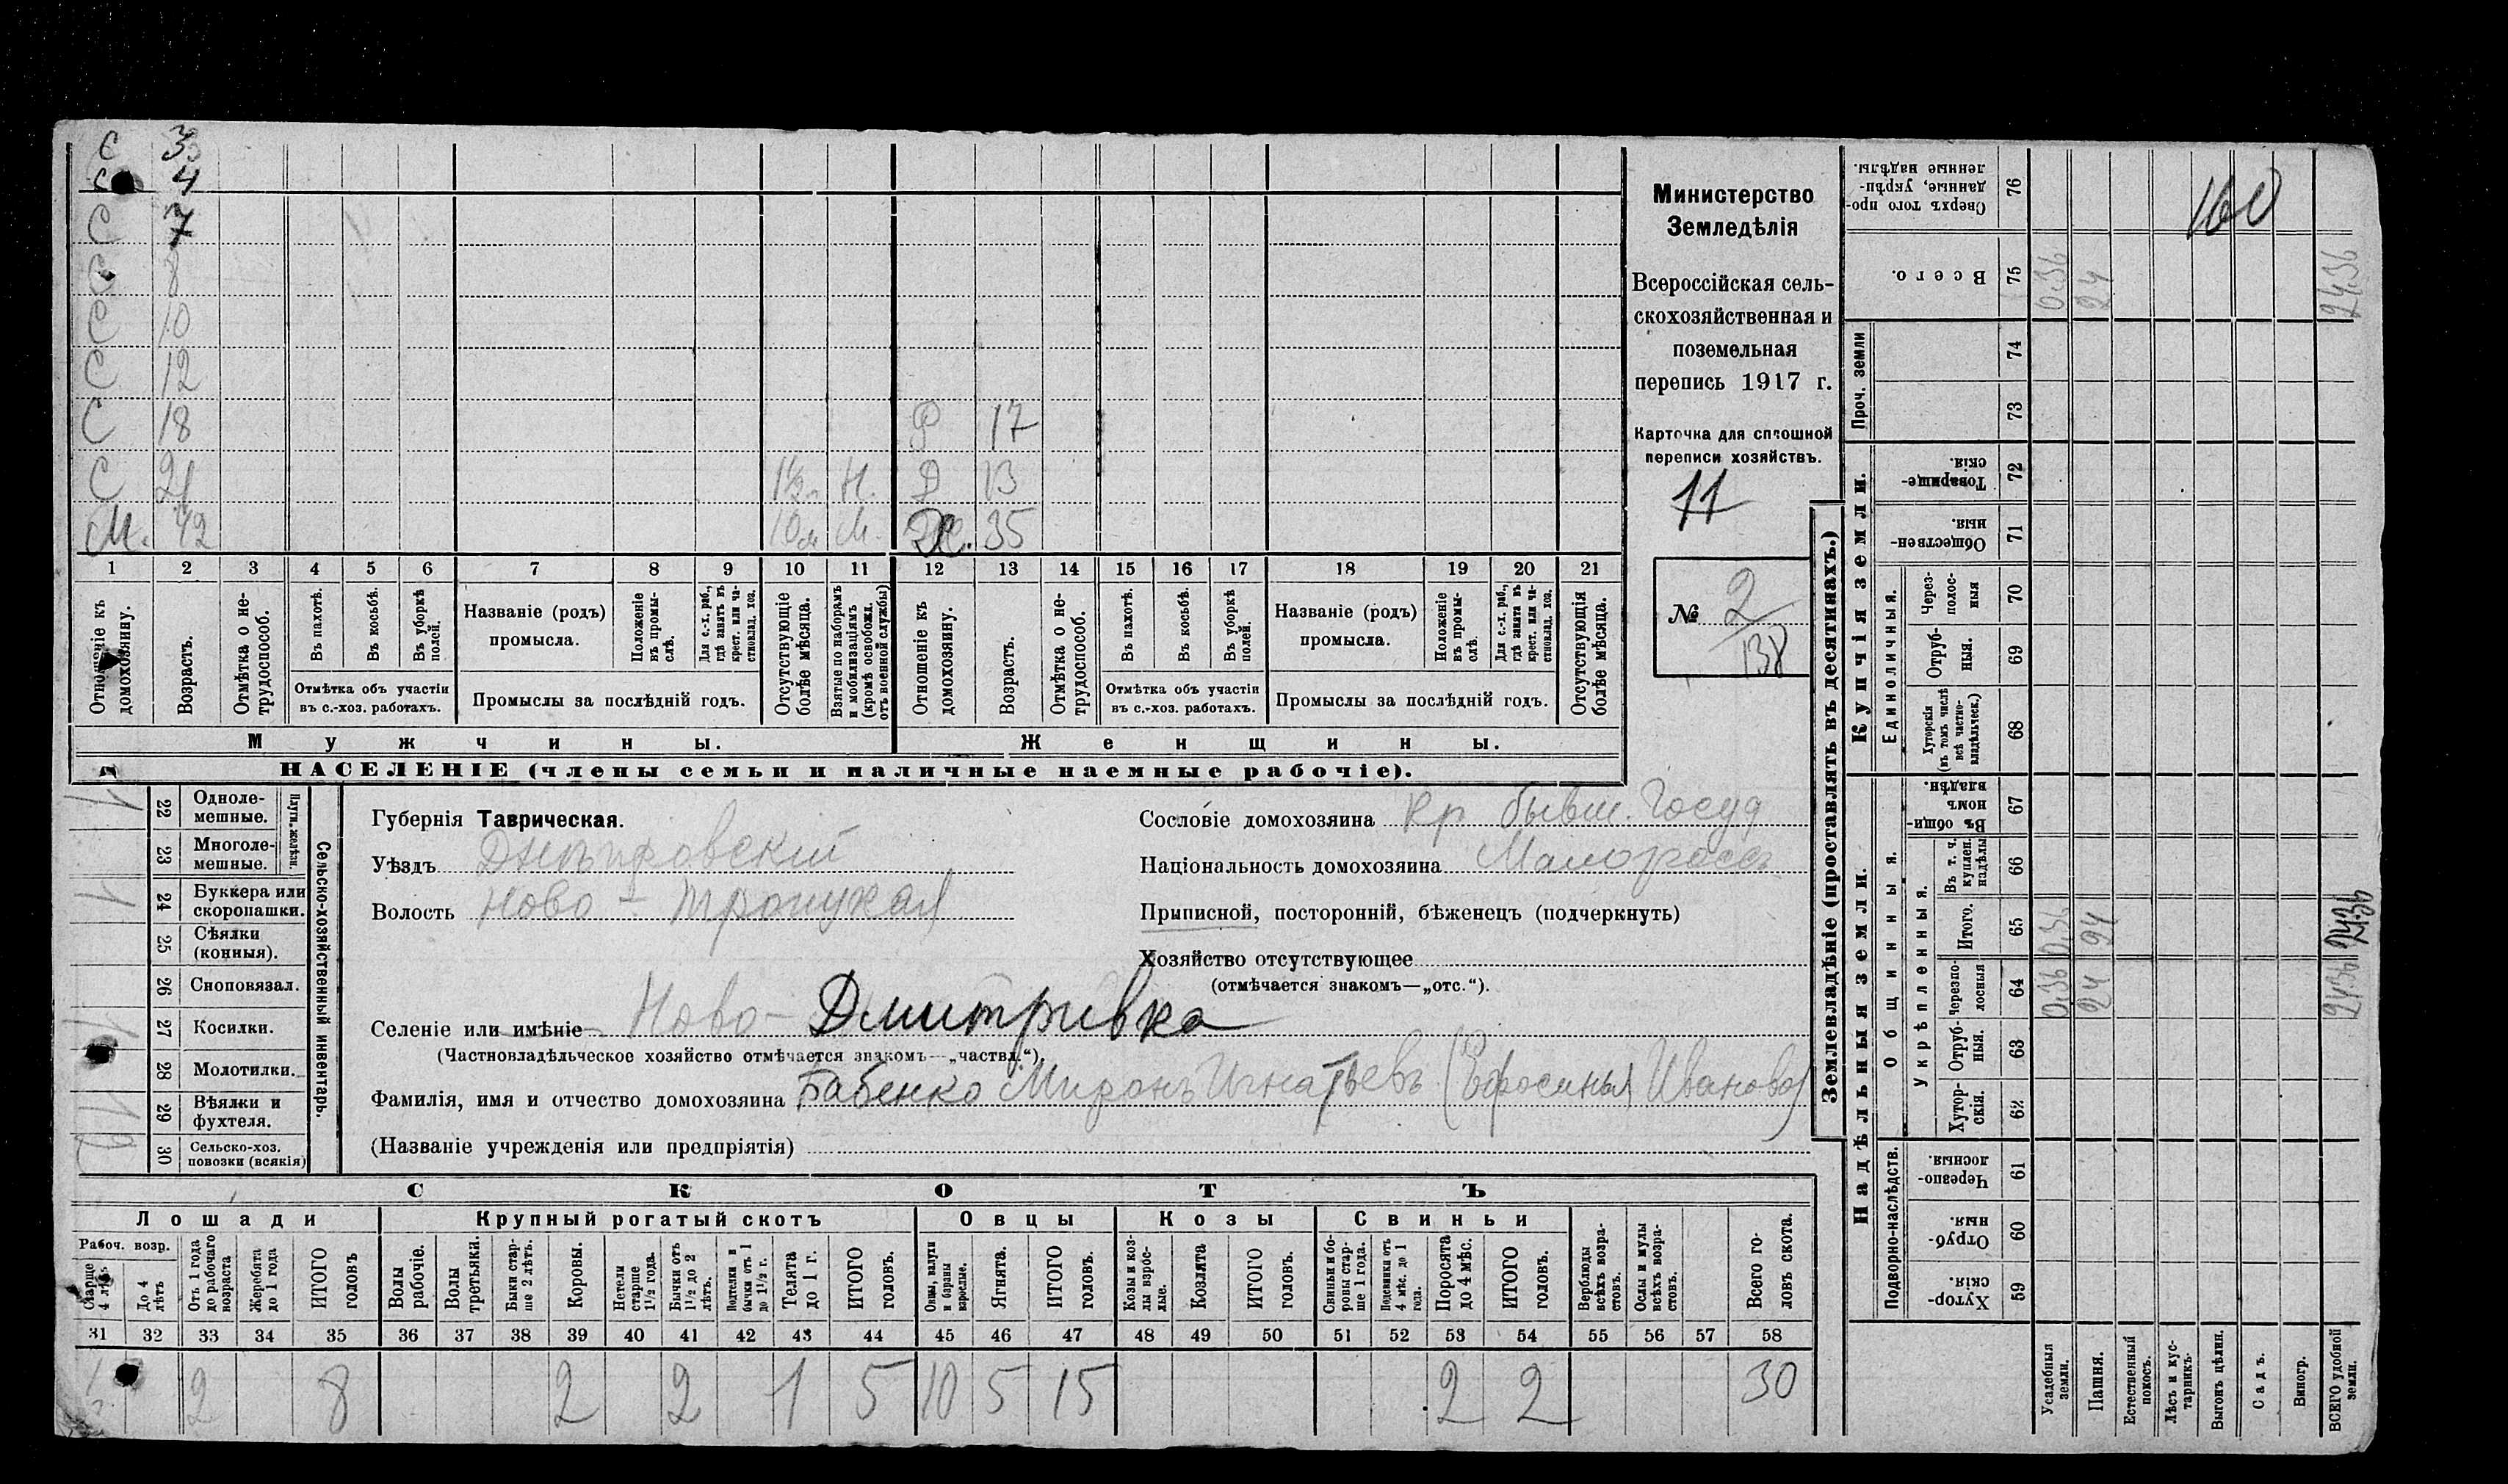 С 3
С 4
С 7
С 8
С 10
С 12
С 18 Ф 17
С 21 Н. Д 13
М. 42 10 м М. Ж. 35
1 2 3 4 5 6 7 8 9 10 11 12 13 14 15 16 17 18 19 20 21
Отношеніе къ домохозяину.
Возрастъ.
Отмѣтка о не-
трудоспособ.
Въ пахотѣ.
Въ косьбѣ.
Въ уборкѣ
полей.
Отмѣтка объ участіи
въ с.-хоз. работахъ.
Названіе (родъ)
промысла.
Положеніе
въ промы-
слѣ.
Для с.-х. раб.,
гдѣ занятъ въ
крест. или ча-
стновлад. хоз.
Промыслы за послѣдній годъ.
Отсутствующіе
болѣе мѣсяца.
Взятые по наборамъ
и мобилизаціямъ
(кромѣ освобожд.
отъ военной службы)
Отношеніе къ
домохозяину.
Возрастъ.
Отмѣтка о не-
трудоспособ.
Въ пахотѣ.
Въ косьбѣ.
Въ уборкѣ
полей.
Отмѣтка объ участіи
въ с.-хоз. работахъ.
Названіе (родъ)
промысла.
Положеніе
въ промы-
слѣ.
Для с.-х. раб.,
гдѣ занята въ
крест. или ча-
стновлад. хоз.
Промыслы за послѣдній годъ.
Отсутствующія
болѣе мѣсяца.
Мужчины.
Женщины.
НАСЕЛЕНІЕ (члены семьи и наличные наемные рабочіе).
Министерство
Земледѣлія
Всероссійская сель-
скохозяйственная и
поземельная
перепись 1917 г.
Карточка для сплошной
переписи хозяйствъ.
11
№ 2
138
22 Одноле-
мешные.
23 Многоле-
мешные.
Плуги желѣзн.
24 Буккера или
скоропашки.
25 Сѣялки
(конныя).
26 Сноповязал.
27 Косилки.
28 Молотилки.
29 Вѣялки и
фухтеля.
30 Сельско-хоз.
повозки (всякія)
Сельско-хозяйственный инвентарь.
Губернія Таврическая.
Уѣздъ Днѣпровскій
Волость Ново-Троицкая
Сословіе домохозяина Кр бывш. Госуд
Національность домохозяина Малороссъ
Приписной, посторонній, бѣженецъ (подчеркнуть)
Хозяйство отсутствующее
(отмѣчается знакомъ—„отс.“).
Селеніе или имѣніе Ново-Дмитривка
(Частновладѣльческое хозяйство отмѣчается знакомъ—„частвл.“).
Фамилія, имя и отчество домохозяина Бабенко Миронъ Игнатьевъ (Ефросинья Иванова)
(Названіе учрежденія или предпріятія)
СКОТЪ
Лошади
Крупный рогатый скотъ
Овцы
Козы
Свиньи
Рабоч. возр.
Старше
4 лѣтъ
До 4
лѣтъ
Отъ 1 года
до рабочаго
возраста
Жеребята
до 1 года
ИТОГО
головъ
Волы
рабочіе.
Волы
третьяки.
Быки стар-
ше 2 лѣтъ.
Коровы.
Нетели
старше
1½ года.
Бычки отъ
1½ до 2
лѣтъ.
Подтелки и
бычки отъ 1
до 1½ г.
Телята
до 1 г.
ИТОГО
головъ.
Овцы, валухи
и бараны
взрослые.
Ягнята.
ИТОГО
головъ.
Козы и коз-
лы взрос-
лые.
Козлята
ИТОГО
головъ.
Свиньи и бо-
ровы стар-
ше 1 года.
Подсвинки отъ
4 мѣс. до 1
года.
Поросята
до 4 мѣс.
ИТОГО
головъ.
Верблюды
всѣхъ возра-
стовъ.
Ослы и мулы
всѣхъ возра-
стовъ.
Всего го-
ловъ скота.
31 32 33 34 35 36 37 38 39 40 41 42 43 44 45 46 47 48 49 50 51 52 53 54 55 56 57 58
2 8 2 2 1 5 10 5 15 2 2 30
Землевладѣніе (проставлять въ десятинахъ.)
Надѣльныя земли.
Купчія земли.
Проч. земли
Подворно-наслѣдств.
Общинныя.
Укрѣпленныя.
Единоличныя.
Сверхъ того про-
данные, укрѣп-
ленные надѣлы.
76
160
Всего.
75 0.36 24 24.36
74
73
Товарище-
скія.
72
Обществен-
ныя
71
Через-
полос-
ныя
70
Отруб-
ныя.
69
Хуторскія
(въ томъ числѣ
всѣ частно-
владѣльческ.)
68
Въ общи-
номъ
владѣн.
67
Въ т. ч.
куплен.
надѣлы
66
Итого.
65 0.36 24 24.36
Черезпо-
лосныя
64 0.36 24 24.36
Отруб-
ныя.
63
Хутор-
скія.
62
Черезпо-
лосныя
61
Отруб-
ныя.
60
Хутор-
скія.
59
Усадебныя
земли.
Пашня.
Естественный
покосъ.
Лѣсъ и кус-
тарникъ
Выгонъ цѣлин.
Садъ.
Виногр.
ВСЕГО удобной
земли.